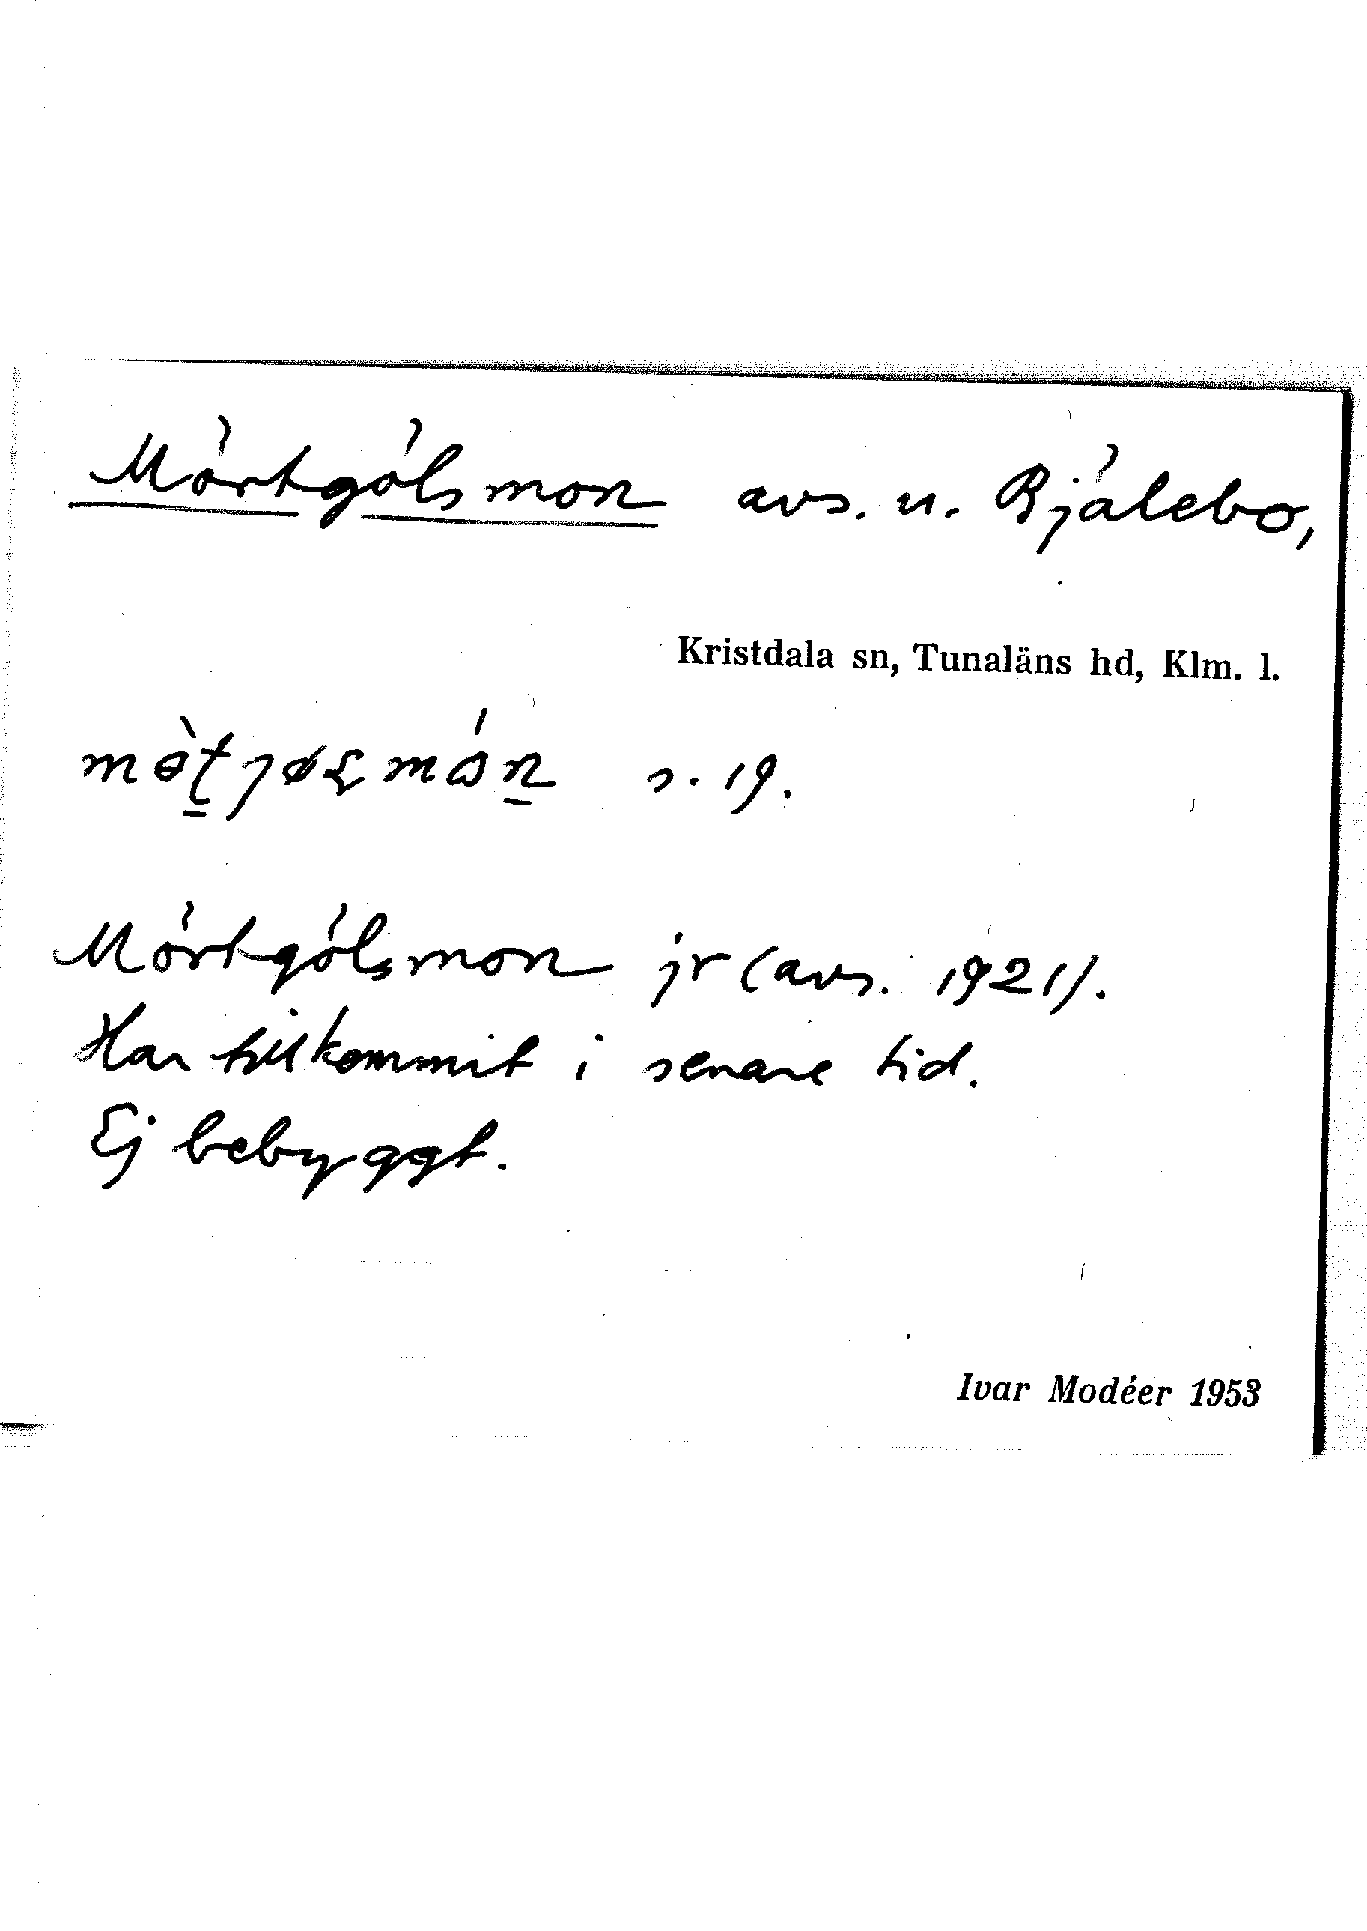 Mörtgölsmon avs. u. Bjälebo,
Kristdala sn, Tunaläns hd, Klm. l.
s. 19.
Mörtgölsmon jr (avs. 1921).
Har tillkommit i senare tid.
Ej bebyggt.
Ivar Modéer 1953